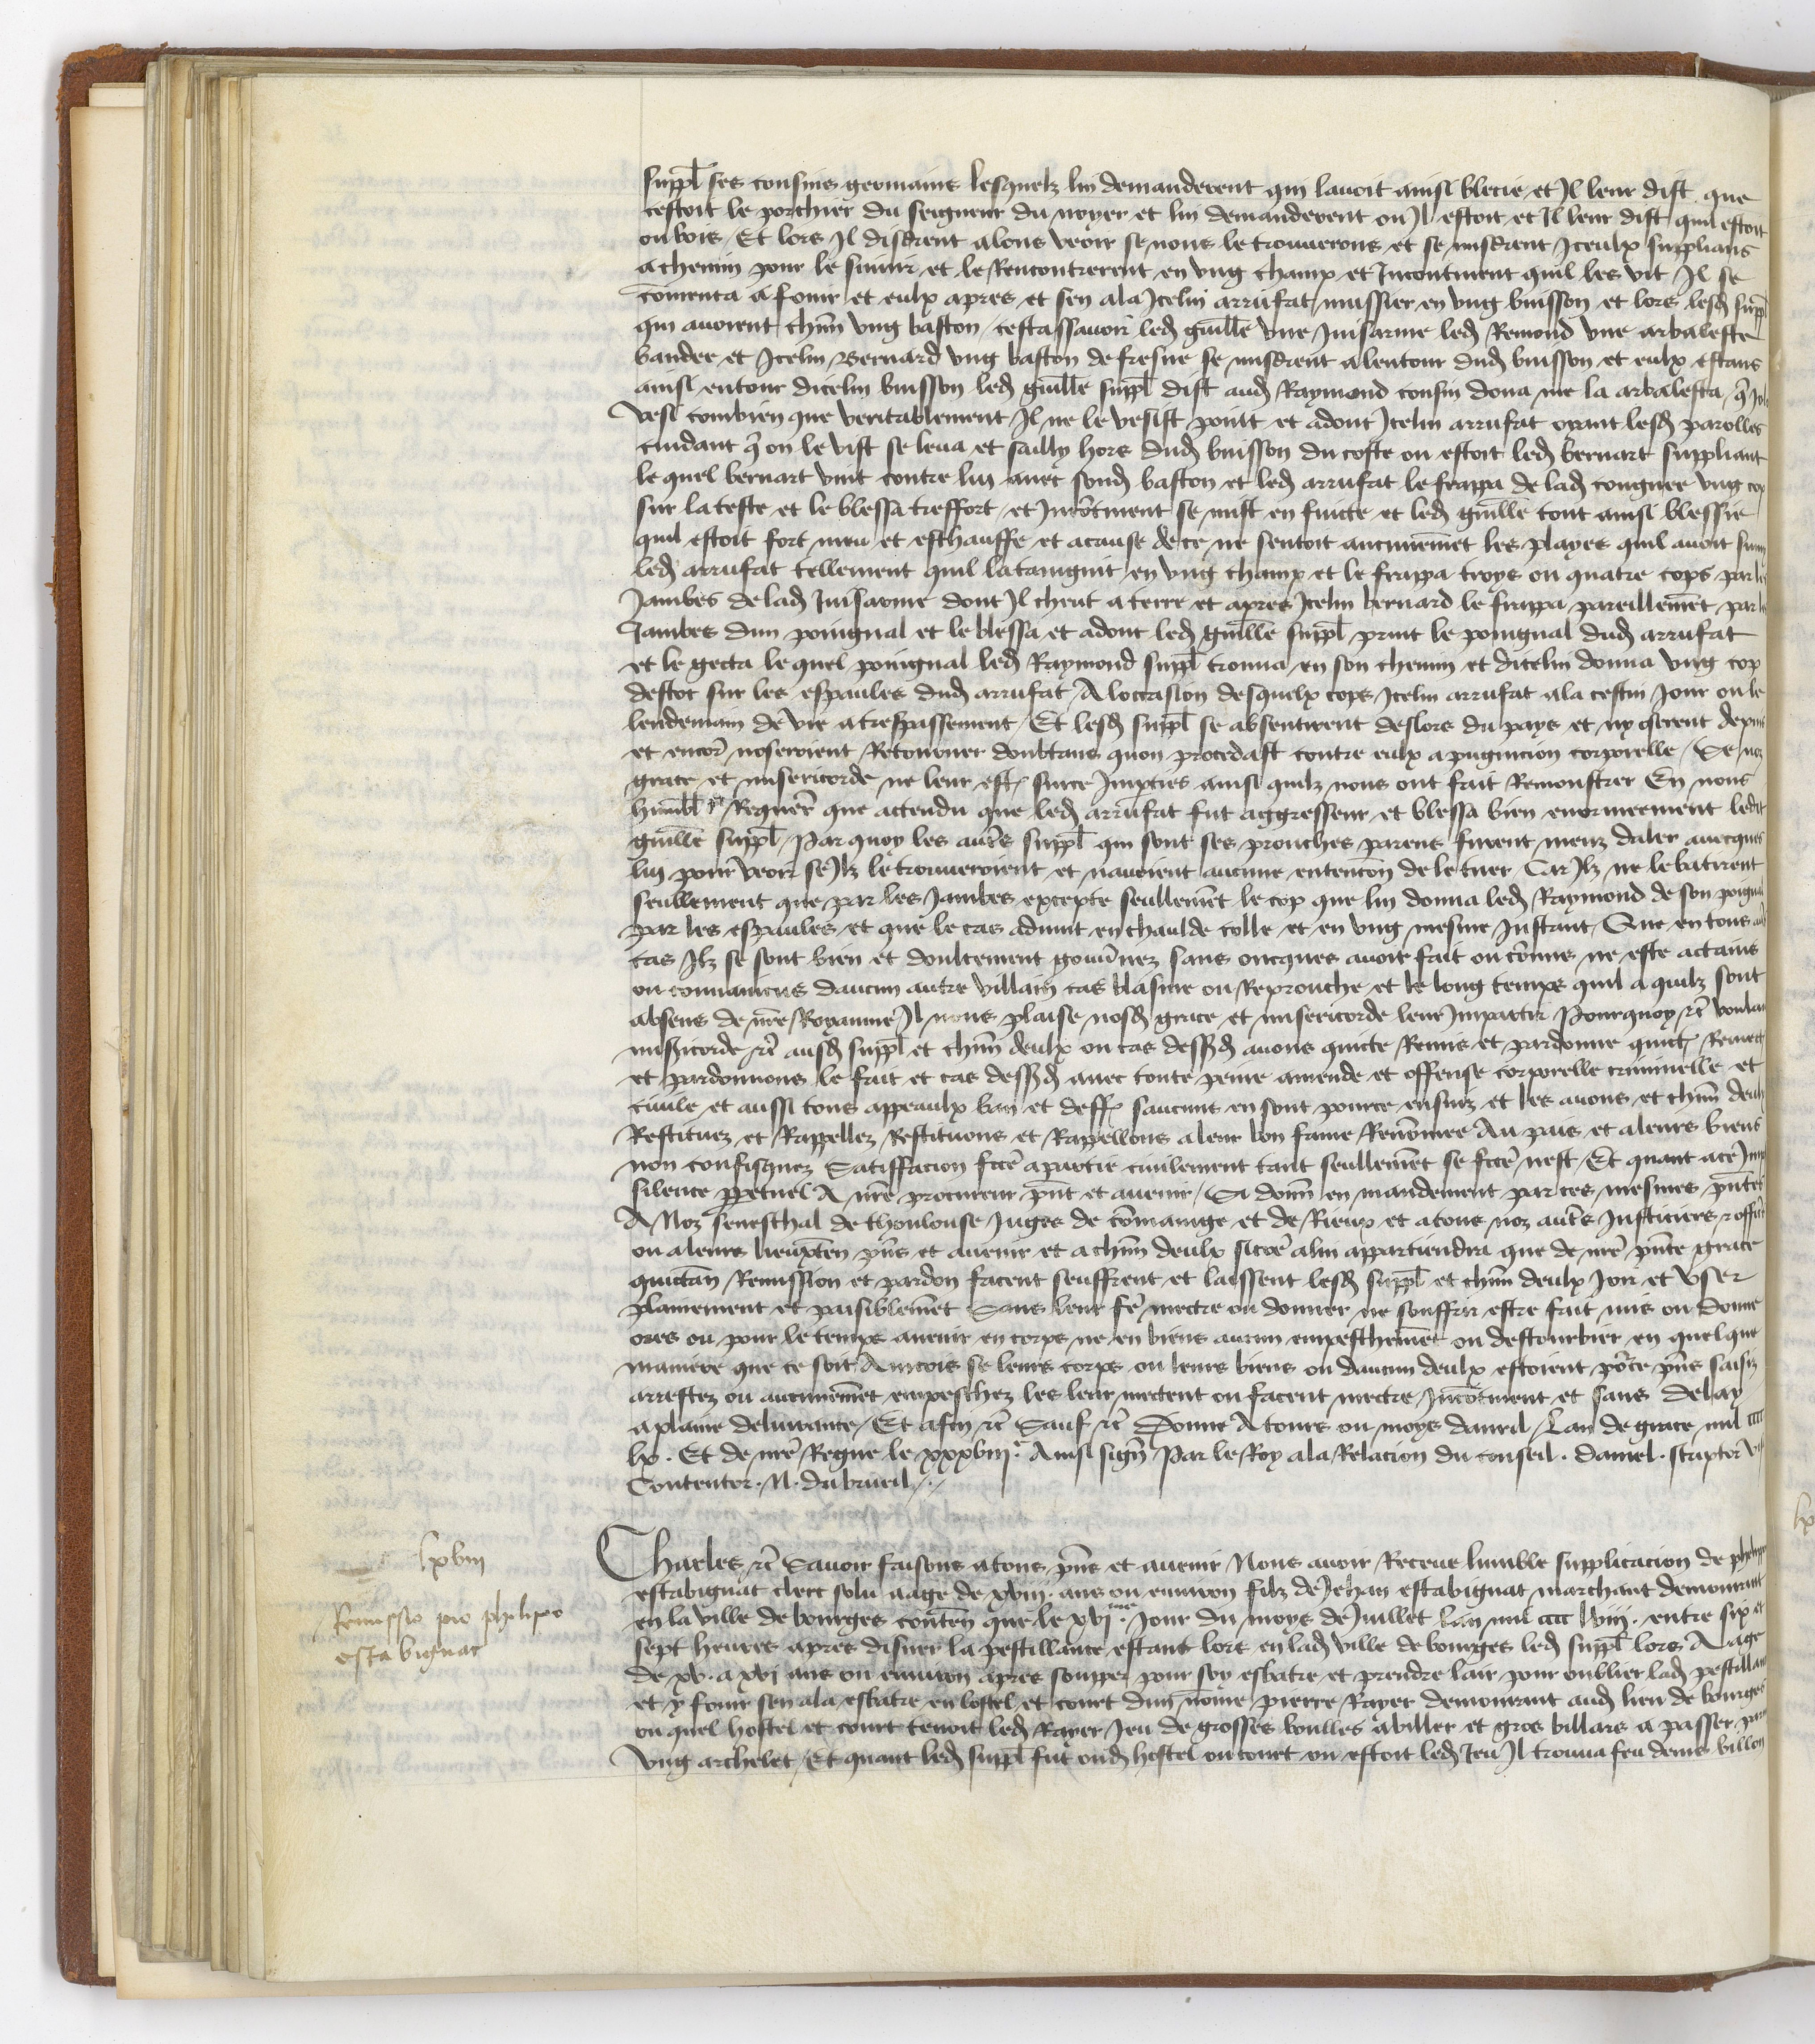 suppl ses cousins germains lesquelz lui demanderent qui lavoit ainsi blecie et Il leur dist que
cestoit le porchier du seigneur du noyer et lui demanderent ou Il estoit et Il leur dist quil estoit
ou bois / Et lors Il disdrent alons veoir se nous le trouverons et se misdrent Iceulx supplians
a chemin pour le suivir et le Rencontrerent en ung champ et Incontinent quil les vit Il se
comenca a fouir et eulx apres et sen ala Icelui arrufat mussier en ung buisson et lors lesd suppl
qui avoient chun ung baston / cestassavoir led guille une Juisarme led Remond une arbaleste
bandee et Icelui Bernard ung baston de fresne se misdrent alentour dud buisson et eulx estans
ainsi entour dicelui buisson led guille suppl dist aud Raymond cousin dona me la arbalesta q
vesi combien que veritablement Il ne le vesist point et adont Icelui arrufat oyant lesd parolles
cuidant q on le vist se leva et sailly hors dud buisson du coste ou estoit led bernart suppliant
le quel bernart vint contre lui avec sond baston et led arrufat le frappa de lad congnee ung cop
sur la teste et le blessa tresfort et Incotinent se mist en fuicte et led guille tout ainsi blessie
quil estoit fort meu et eschauffe et a cause de ce ne sentoit aucunemet les playes quil avoit suivy
led arrufat tellement quil lataingnit en ung champ et le frappa troys ou quatre cops par les
Jambes de lad Juisarme dont Il cheut a terre et apres Icelui bernard le frappa pareillemet par les
Jambes dun poingnal et le blessa et adont led guille suppl print le poingnal dud arrufat
et le gecta le quel poingnal led Raymond suppl trouva en son chemin et dicelui donna ung cop
destoc sur les espaules dud arrufat / A loccasion desquelx cops Icelui arrufat ala cestui Jour ou le
lendemain de vie a trespassement / Et lesd suppl se absenterent deslors du pays et ny oserent depuis
et encor noseroient Retourner doubtans quon procedast contre eulx a pugnicion corporelle / Se noz
grace et misericorde ne leur est sur ce Imparties ainsi quilz nous ont fait Remonstrer En nous
humblt Requer que actendu que led arrufat fut aggresseur et blessa bien enormeement ledit
guille suppl / Par quoy les autes suppl qui sont ses prouches parens furent meuz daler avecques
lui pour veoir se Ilz le trouveroient et navoient aucune entencon de le tuer Car Ilz ne le batirent
seullement que par les Jambes excepte seullemet le cop que lui donna led Raymond de son poignal
par les espaules et que le cas advint en chaulde colle et en ung mesme Instant / Que en tous
cas Ilz se sont bien et doulcement gouvnez sans oncques avoir fait ou comis ne este actains
ou convaincus daucun autre villain cas blasme ou Reprouche et le long temps quil a quilz sont
absens de nre Royaume Il nous plaise nosd grace et misericorde leur Impartir Pourquoy etc voulans
misericorde etc ausd suppl et chun deulx ou cas dessusd avons quicte Remis et pardonne quict Remect
et pardonnons le fait et cas dessusd avec toute peine amende et offense corporelle criminelle et
civile et aussi tous appeaulx ban et deff saucuns en sont pource ensuiz et les avons et chun deulx
Restituez et Rappellez Restituons et Rappellons a leur bon fame Renomee Au pais et a leurs biens
non confisquez Satiffacion fcte a partie civilement tant seullemet se fcte nest / Et quant ace Imp
silence ppetuel A nre procureur pnt et avenir / Si donn en mandement par ces mesmes pntes
A Noz seneschal de thoulouse Juges de comainge et de Rieux et a tous noz autes Justiciers et offic
ou a leurs lieuxten pns et avenir et a chun deulx sicoe alui appartiendra que de nre pnte grace
quictan Remission et pardon facent seuffrent et laissent lesd suppl et chun deulx Joir et User
plainement et paisiblemet Sans leur fe mectre ou donner ne souffrir estre fait mis ou donne
ores ou pour le temps avenir en corps ne en biens aucun empeschemet ou destourbier en quelque
maniere que ce soit Aincois se leurs corps ou leurs biens ou daucun deulx estoient poce pns saisiz
arrestez ou aucunemet empeschez les leur mectent ou facent mectre Incotinent et sans delay
a plaine delivrance / Et afin etc Sauf etc Donne A tours ou moys davril Lan de grace mil cccc
lx . Et de nre Regne le xxxviii.e Ainsi sign Par le Roy a la Relacion du conseil . daniel . scriptor vis
Contentor . N . du brueil
lxviii
Remissio pro philipo
estabignat
Charles etc Savoir faisons a tous pns et avenir Nous avoir Receue lumble supplicacion de phelippe
estabignat clerc solu aage de xviii . ans ou environ filz de Jehan estabignat marchant demourant
en la ville de bourges conten que le xvi.me Jour du moys de Juillet Lan mil cccc lviii . entre six et
sept heures apres disner la pestillance estant lors en lad ville de bourges led suppl lors Aage
de xv . a xvi ans ou environ apres soupper pour soy esbatre et prendre lair pour oublier lad pestillance
et y fouir sen ala esbatre en lostel et court dun nome pierre Rayer demourant aud lieu de bourges
ou quel hostel et court tenoit led Rayer Jeu de grosses boulles a biller et gros billars a passer par
ung archelet / Et quant led suppl fut oud hostel ou court ou estoit led Jeu Il trouva feu denis billon